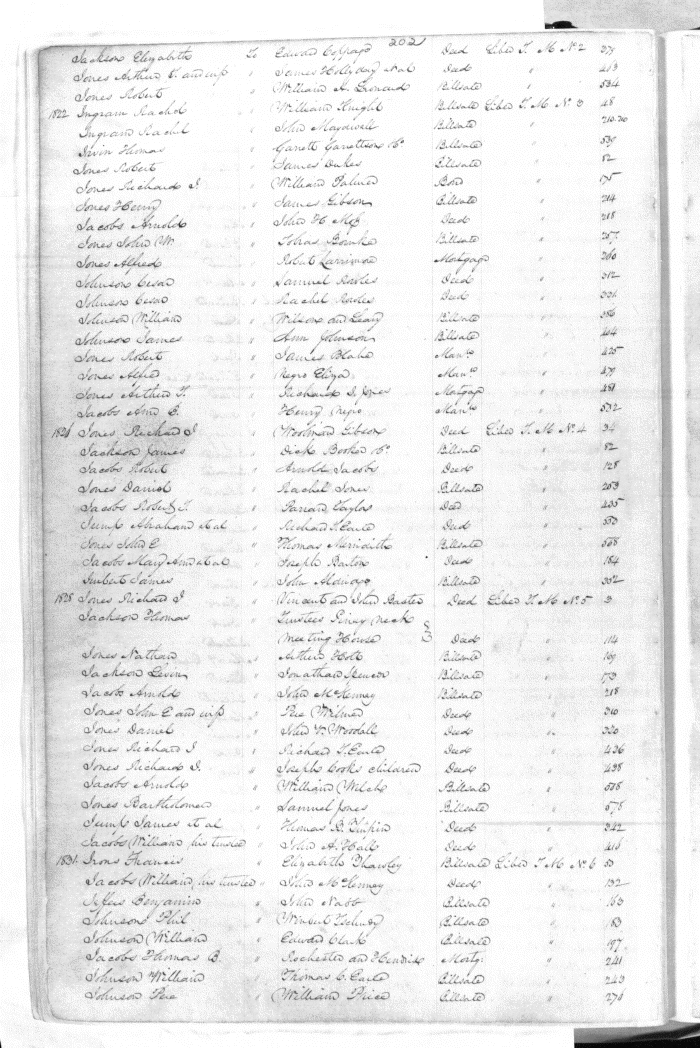 202
Jackson Elizabeth To Edward Coppage Deed Liber T. M. No 2 379
Jones Arthur T. and wife " James Holliday et al Deed " 463
Jones Robert " William A. Leonard Billsale " 534
1822 Ingram Rachel " William Knight Billsale Liber T. M. No. 3 48
Ingram Rachel " John Billsale "
Irvin Thomas " Garrett Garrettson &c Billsale " 539
Jones Robert " James Dukes Billsale " 82
Jones Richard I. " William Palmer Bond " 175
Jones Henry " James Gibson Billsale " 214
Jacobs Arnold " John H. Deed " 218
Jones John W. " Tobias Bourke Billsale " 257
Jones Alfred " Robert Larrimore Mortgage " 260
Johnson Cesar " Samuel Rooles Deed " 312
Johnson Cesar " Rachel Rooles Deed " 331
Johnson William " Wilson and Leary Billsale " 386
Johnson James " Ann Johnson Billsale " 404
Jones Robert " James Blake Mann. " 425
Jones Alfred " Negro Eliza Mann. " 479
Jones Arthur T. " Richard I. Jones Mortgage " 481
Jacobs Ann E. " Henry Negro Mann. " 532
Jones Richard I " Woolman Gibson Deed Liber T. M. No. 4 34
Jackson James " Dick Booker &c. Billsale " 82
Jacobs Robert " Arnold Jacobs Deed " 128
Jones Daniel " Rachel Jones Billsale " 203
Jacobs Robert T. " Parrard Taylor Deed " 435
Jump Abraham et al " Richard T. Earle Deed " 553
Jones John E " Thomas Meridith Billsale " 568
Jacobs Mary Ann et al " Joseph Barton Deed " 184
James " John Billsale " 332
1828 Jones Richard I " Vincent and John Baxter Deed Liber T. M. No. 5 3
Jackson Thomas " Trustees Piney Neck
Meeting House Deed " 114
Jones Nathan " Arthur Holt Billsale " 169
Jackson Levin " Jonathan Spencer Billsale " 173
Jacobs Arnold " John McKenney Billsale " 218
Jones John E and wife " Pere Wilmer Deed " 310
Jones Daniel " John V. Woodall Deed " 320
Jones Richard I " Richard T. Earle Deed " 426
Jones Richard I. " Joseph Cooks children Deed " 438
Jacobs Arnold " William Welch Billsale " 508
Jones Bartholomew " Samuel Jones Billsale " 578
Jump James et al " Thomas B. Turpin Deed " 342
Jacobs William, his trustee " John A. Hall Deed " 416
1831 Irons Francis " Elizabeth Tharsley Billsale Liber T M No 6 53
Jacobs William, his trustee " John McKenney Deed " 132
Benjamin " John Nabb Billsale " 163
Johnson Phil " Billsale " 183
Johnson William " Edward Clark Billsale " 197
Jacobs Thomas B. " Rochester and Hendrix Mortg. " 241
Johnson William " Thomas C. Earle Billsale " 243
Johnson Pere " William Price Billsale " 276